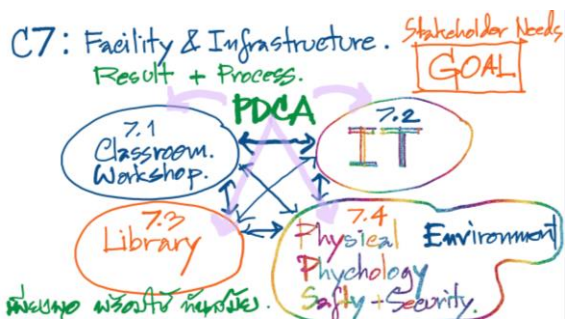 C7: Facility & Infrastructure.
Stakeholder Needs
GOAL
Result + Process.
PDCA
7.1
Classroom.
Workshop.
7.2
IT
7.3
Library
7.4
Physical Environment
Phychology
Safty + Security.
เพียงพอ พร้อมใช้ ทันสมัย.